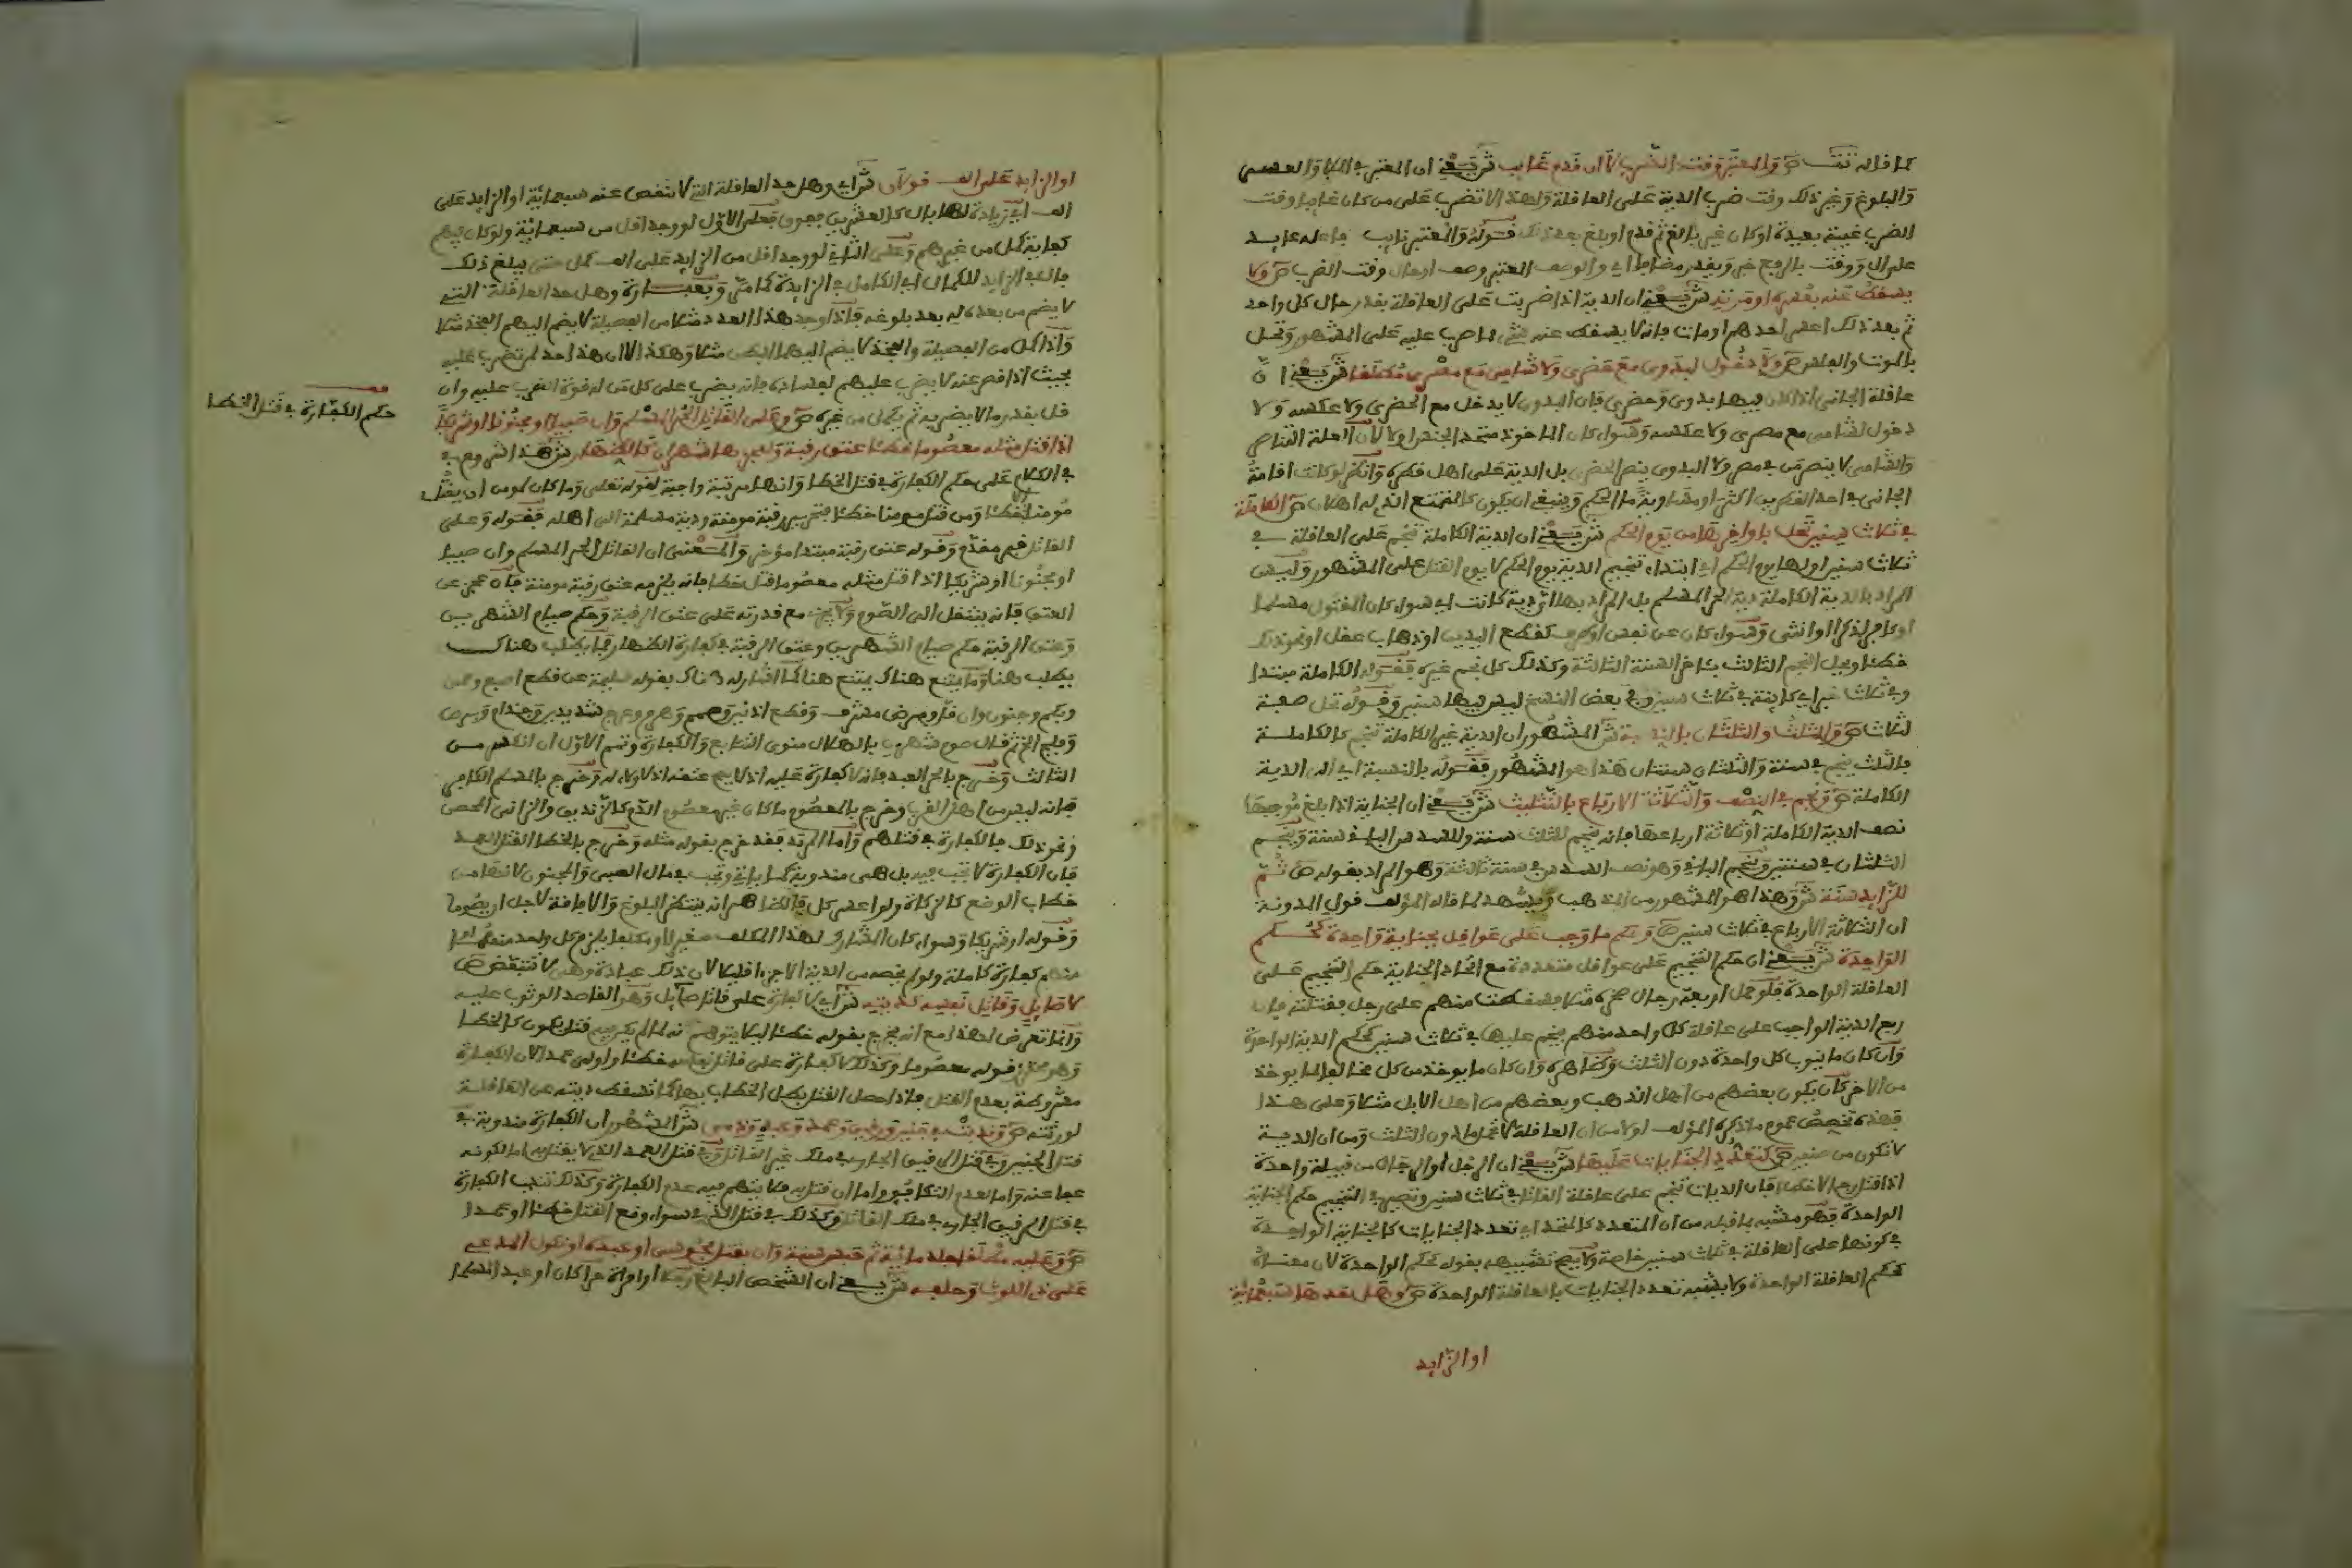 كما قاله تت ص والمعتبر وقت الضرب لا ان قدم غايب ش يعني ان المعتبر في الملا والعسر
والبلوغ وغير ذلك وقت ضرب الدية على العاقلة ولهذا لا تضرب على من كان غايبا وقت
الضرب غيبة بعيدة او كان غير بالغ ثم قدم او بلغ بعد ذلك فقوله والمعتبر نايب فاعله عايد
على ال ووقت بالرفع خبر ويقدر مضاف اي والوصف المعتبر وصف او حال وقت الضرب ص ولا
يسقط عنه بعسره او موته ش يعني ان الدية اذا ضربت على العاقلة بقدر حال كل واحد
ثم بعد ذلك اعسر احدهم او مات فانه لا يسقط عنه شي مما ضرب عليه على المشهور وتحل
بالموت والفلس ص ولا دخول لبدوي مع حضري ولا شامي مع مصري مطلقا ش يعني ان
عاقلة الجاني اذا كان فيها بدوي وحضري فان البدوي لا يدخل مع الحضري ولا عكسه ولا
دخول لشامي مع مصري ولا عكسه وسواء كان الماخوذ متحد الجنس او لا لان العلة التناصر
والشامي لا ينصر من في مصر ولا البدوي ينصر الحضري بل الدية على اهل قطره وانظر لو كانت اقامة
الجاني في احد القطرين اكثر او مساوية ما الحكم وينبغي ان يكون كالمتمتع الذي له اهلان ص الكاملة
في ثلاث سنين تحل باواخرها من يوم الحكم ش يعني ان الدية الكاملة تنجم على العاقلة في
ثلاث سنين اولها يوم الحكم اي ابتداء تنجيم الدية يوم الحكم لا يوم القتل على المشهور وليس
المراد بالدية الكاملة دية الحر المسلم بل المراد بها اي دية كانت اي سواء كان المقتول مسلما
او كافرا ذكرا او انثى وسواء كان عن نفس او طرف كقطع اليدين او ذهاب عقل او نحو ذلك
خطئا ويحل النجم الثالث باخر السنة الثالثة وكذلك كل نجم غيره فقوله الكاملة مبتدا
وفي ثلاث خبر اي كاينة في ثلاث سنين وفي بعض النسخ ليس فيها سنين وقوله تحل صفة
لثلاث ص والثلث والثلثان بالنسبة ش المشهور ان الدية غير الكاملة تنجم كالكاملة
فالثلث ينجم في سنة والثلثان سنتان هذا هو المشهور فقوله بالنسبة اي الى الدية
الكاملة ص ونجم في النصف والثلاثة الارباع بالتثليث ش يعني ان الجناية اذا بلغ موجبها
نصف الدية الكاملة او ثلاثة ارباعها فانه ينجم للثلث سنة وللسدس الباقي سنة وينجم
الثلثان في سنتين وينجم الباقي وهو نصف السدس في سنة ثالثة وهو المراد بقوله ص ثم
للزايد سنة ش وهذا هو المشهور من المذهب ويشهد لما قاله المؤلف قول المدونة
ان الثلاثة الارباع في ثلاث سنين ص وحكم ما وجب على عواقل بجناية واحدة كحكم
الواحدة ش يعني ان حكم التنجيم على عواقل متعددة مع اتحاد الجناية حكم التنجيم على
العاقلة الواحدة فلو حمل اربعة رجال صخرة مثلا فسقطت منهم على رجل فقتلته فان
ربع الدية الواجب على عاقلة كل واحد منهم ينجم عليها في ثلاث سنين كحكم الدية الواحدة
وان كان ما ينوب كل واحدة دون الثلث وظاهره وان كان ما يوخذ من كل مخالفا لما يوخذ
من الاخر كان يكون بعضهم من اهل الذهب وبعضهم من اهل الابل مثلا وعلى هذا
فهذه تخصص عموم ما ذكره المؤلف اولا من ان العاقلة لا تحمل ما دون الثلث ومن ان الدية
لا تكون من صنفين ص كتعدد الجنايات عليها ش يعني ان الرجل او الرجال من قبيلة واحدة
اذا قتل رجالا خطا فان الديات تنجم على عاقلة القاتل في ثلاث سنين وتصير في التنجيم حكم الجناية
الواحدة فهو مشبه بما قبله من ان المتعدد كالمتحد اي تعدد الجنايات كالجناية الواحدة
في كونها على العاقلة في ثلاث سنين خاصة ولا يصح تشبيهه بقوله كحكم الواحدة لان معناه
كحكم العاقلة الواحدة ولا يشبه تعدد الجنايات بالعاقلة الواحدة ص وهل حدها سبعماية
او الزايد
او الزايد على الف قولان ش اي وهل حد العاقلة التي لا تنقص عنه سبعماية او الزايد على
الف اي زيادة لها بال كالعشرين فعلى الاول لو وجد اقل من سبعماية ولو كان فيهم
كفاية كمل من غيرهم وعلى الثاني لو وجد اقل من الزايد على الف كمل حتى يبلغ ذلك
لا يضم من بعده له بعد بلوغه فاذا وجد هذا العدد مثلا من الفصيلة لا يضم اليهم الفخذ مثلا
واذا كمل من الفصيلة والفخذ لا يضم اليهما البطن مثلا وهكذا
قتل بقدر ما لا يضر به ثم يكمل من غيره ص وعلى القاتل الحر المسلم وان صبيا او مجنونا او شريكا
اذا قتل مثله معصوما خطئا عتق رقبة ولعجزها شهران كالظهار ش هذا شروع
في الكلام على حكم الكفارة في قتل الخطا وانها مرتبة واجبة لقوله تعلى وما كان لمومن ان يقتل
مومنا الا خطئا ومن قتل مومنا خطئا فتحرير رقبة مومنة ودية مسلمة الى اهله فقوله وعلى
القاتل خبر مقدم وقوله عتق رقبة مبتدا مؤخر والمعنى ان القاتل الحر المسلم وان صبيا
او مجنونا او شريكا اذا قتل مثله معصوما قتل خطا فانه يلزمه عتق رقبة مومنة فان عجز عن
العتق فانه ينتقل الى الصوم ولا يجزئ مع قدرته على عتق الرقبة وحكم صيام الشهرين
وعتق الرقبة حكم صيام الشهرين وعتق الرقبة في كفارة الظهار فما يطلب هناك
يطلب هنا وما يمنع هناك يمنع هنا كما اشار له هناك بقوله سليمة عن قطع اصبع وعمى
وبكم وجنون وان قل ومرض مشرف وقطع اذنين وصمم وهرم وعرج شديدين وجذام وبرص
وفلج الخ ثم قال صوم شهرين بالهلال منوي التتابع والكفارة وتمم الاول ان انكسر من
الثالث وخرج بالحر العبد فانه لا كفارة عليه اذ لا يصح عتقه اذ لا ولاء له وخرج بالمسلم الكافر
فانه ليس من اهل القرب وخرج بالمعصوم ما كان غير معصوم الدم كالزنديق والزاني المحصن
ونحو ذلك فلا كفارة في قتلهم واما المرتد فقد خرج بقوله مثله وخرج بالخطا القتل العمد
فان الكفارة لا تجب فيه بل هي مندوبة كما ياتي وتجب في مال الصبي والمجنون لانها من
خطاب الوضع كالزكاة ولو اعسر كل فالظاهر انه ينتظر البلوغ والافاقة لاجل ان يصوما
وقوله او شريكا وسواء كان المشارك لهذا المكلف صغيرا او مكلفا يلزم كل واحد منهما
منهم كفارة كاملة ولو لم يخصه من الدية الا جزءا قليلا لان ذلك عبادة وهي لا تتبعض ص
لا صايل وقاتل نفسه كديته ش اي لا كفارة على قاتل صايل وهو القاصد الوثوب عليه
وانما تعرض لهذا مع انه يخرج بقوله خطئا ليلا يتوهم انه لما لم يكن فيه قتل يكون كالخطا
وهو محترز قوله معصوما وكذلك لا كفارة على قاتل نفسه خطئا واولى عمدا لان الكفارة
مشروطة بعدم القتل فاذا حصل القتل بطل الخطاب بها كما تسقط ديته عن العاقلة
لورثته ص وندبت في جنين ورقيق وعمد وعبد وذمي ش المشهور ان الكفارة مندوبة في
قتل الجنين وفي قتل الرقيق الجاري في ملك غير القاتل وفي قتل العمد الذي لا يقتل به اما لكونه
عفا عنه واما لعدم التكافؤ واما ان قتل به فلا يتهم فيه عدم الكفارة وكذلك تندب الكفارة
في قتل الرقيق الجاري في ملك القاتل وكذلك في قتل الذمي سواء وقع القتل خطئا او عمدا
ص وعليه مطلقا جلد ماية ثم حبس سنة وان بقتل مجوسي او عبده او نكول المدعي
على ذي اللوث وحلفه ش يعني ان الشخص البالغ رجلا او امراة حرا كان او عبدا مسلما
حكم الكفارة في قتل الخطا